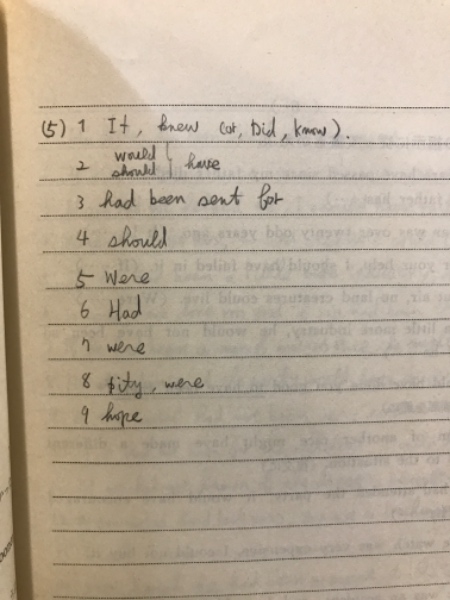 (5) 1 If, knew (or, Did, know).
2 would should } have
3 had been sent for
4 should
5 Were
6 Had
7 were
8 pity, were
9 hope